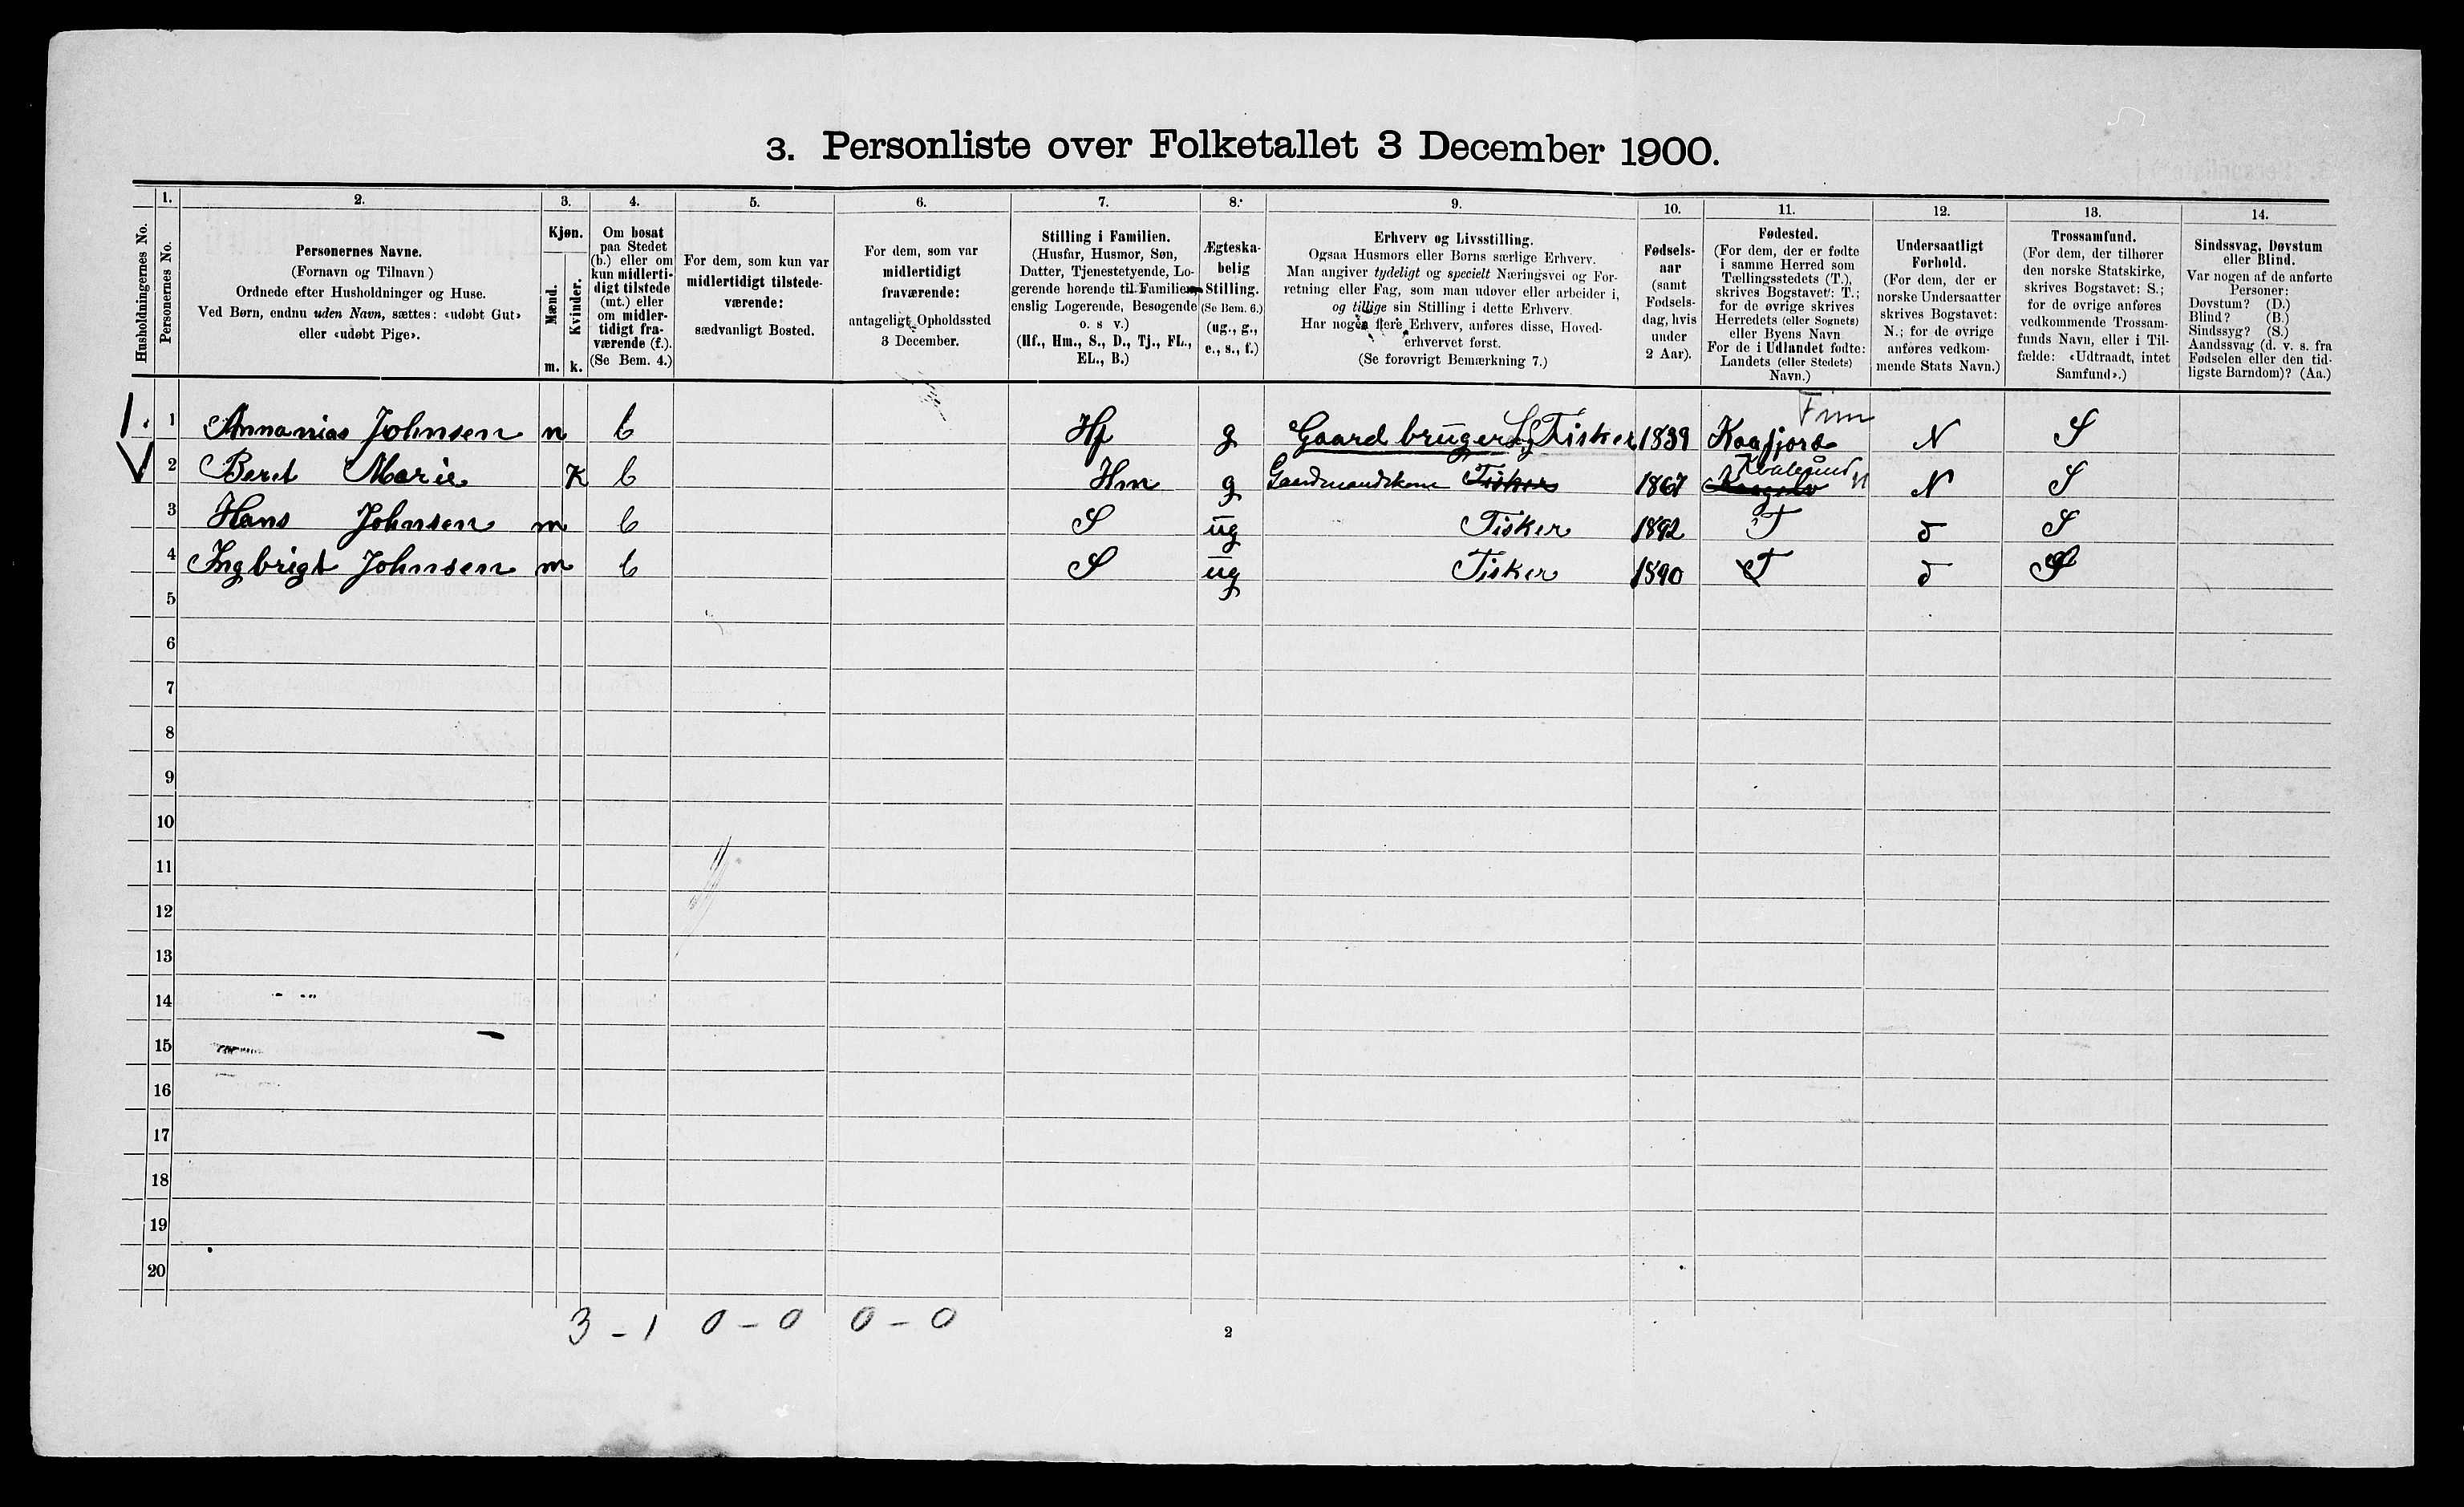 3. Personliste over Folketallet 3 December 1900.
Husholdningernes No.
1.
Personernes No.
2.
Personernes Navne.
(Fornavn og Tilnavn)
Ordnede efter Husholdninger og Huse.
Ved Børn, endnu uden Navn, sættes: «udøbt Gut»
eller «udøbt Pige».
3.
Kjøn.
Mænd.
Kvinder.
m. k.
4.
Om bosat
paa Stedet
(b.) eller om
kun midlerti-
digt tilstede
(mt.) eller
om midler-
tidigt fra-
værende (f.).
(Se Bem. 4.)
5.
For dem, som kun var
midlertidigt tilstede-
værende:
sædvanligt Bosted.
6.
For dem, som var
midlertidigt
fraværende:
antageligt Opholdssted
3 December.
7.
Stilling i Familien.
(Husfar, Husmor, Søn,
Datter, Tjenestetyende, Lo-
gerende hørende til Familien,
enslig Logerende, Besøgende
o. s v.)
(Hf., Hm., S., D., Tj., FL.,
EL., B.)
8.
Ægteska-
belig
Stilling.
(Se Bem. 6.)
(ug., g.,
e., s., f.)
9.
Erhverv og Livsstilling.
Ogsaa Husmors eller Børns særlige Erhverv.
Man angiver tydeligt og specielt Næringsvei og For-
retning eller Fag, som man udøver eller arbeider i,
og tillige sin Stilling i dette Erhverv.
Har nogen flere Erhverv, anføres disse, Hoved-
erhvervet først.
(Se forøvrigt Bemærkning 7.)
10.
Fødsels-
aar
(samt
Fødsels-
dag, hvis
under
2 Aar).
11.
Fødested.
(For dem, der er fødte
i samme Herred som
Tællingsstedets (T.),
skrives Bogstavet: T.;
for de øvrige skrives
Herredets (eller Sognets)
eller Byens Navn
For de i Udlandet fødte:
Landets (eller Stedets)
Navn.)
12.
Undersaatligt
Forhold.
(For dem, der er
norske Undersaatter
skrives Bogstavet:
N.; for de øvrige
anføres vedkom-
mende Stats Navn.)
13.
Trossamfund.
(For dem, der tilhører
den norske Statskirke,
skrives Bogstavet: S.;
for de øvrige anføres
vedkommende Trossam-
funds Navn, eller i Til-
fælde: «Udtraadt, intet
Samfund».)
14.
Sindssvag, Døvstum
eller Blind.
Var nogen af de anførte
Personer:
Døvstum? (D.)
Blind? (B.)
Sindssyg? (S.)
Aandssvag (d. v. s. fra
Fødselen eller den tid-
ligste Barndom)? (Aa.)
Finn
1. 1 Annanias Johnsen m b Hf g Gaardbruger og Fisker 1839 Kaafjord N S
Kvalsund "
2 Beret Marie K b Hm g Gaardmandskone Fisker 1867 N S
3 Hans Johnsen m b S ug Fisker 1892 T d S
4 Ingbrigt Johnsen m b S ug Fisker 1890 T d S
5
6
7
8
9
10
11
12
13
14
15
16
17
18
19
20
3 - 1 0 - 0 0 - 0
2